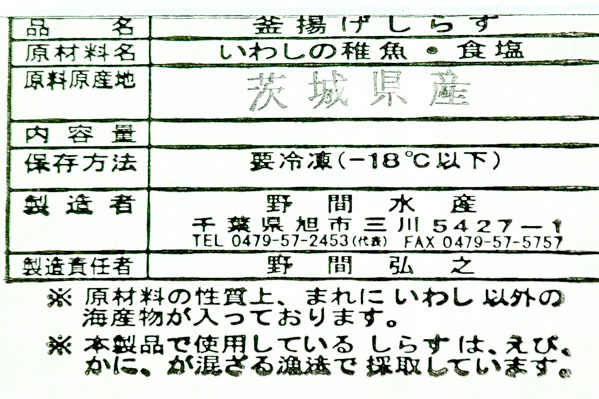 品名 釜揚げしらす
原材料名 いわしの稚魚・食塩
原料原産地 茨城県産
内容量
保存方法 要冷凍(-18℃以下)
製造者 野間水産
千葉県旭市三川5427-1
TEL 0479-57-2453(代表) FAX 0479-57-5757
製造責任者 野間弘之
※原材料の性質上、まれにいわし以外の
海産物が入っております。
※本製品で使用しているしらすは、えび、
かに、が混ざる漁法で採取しています。